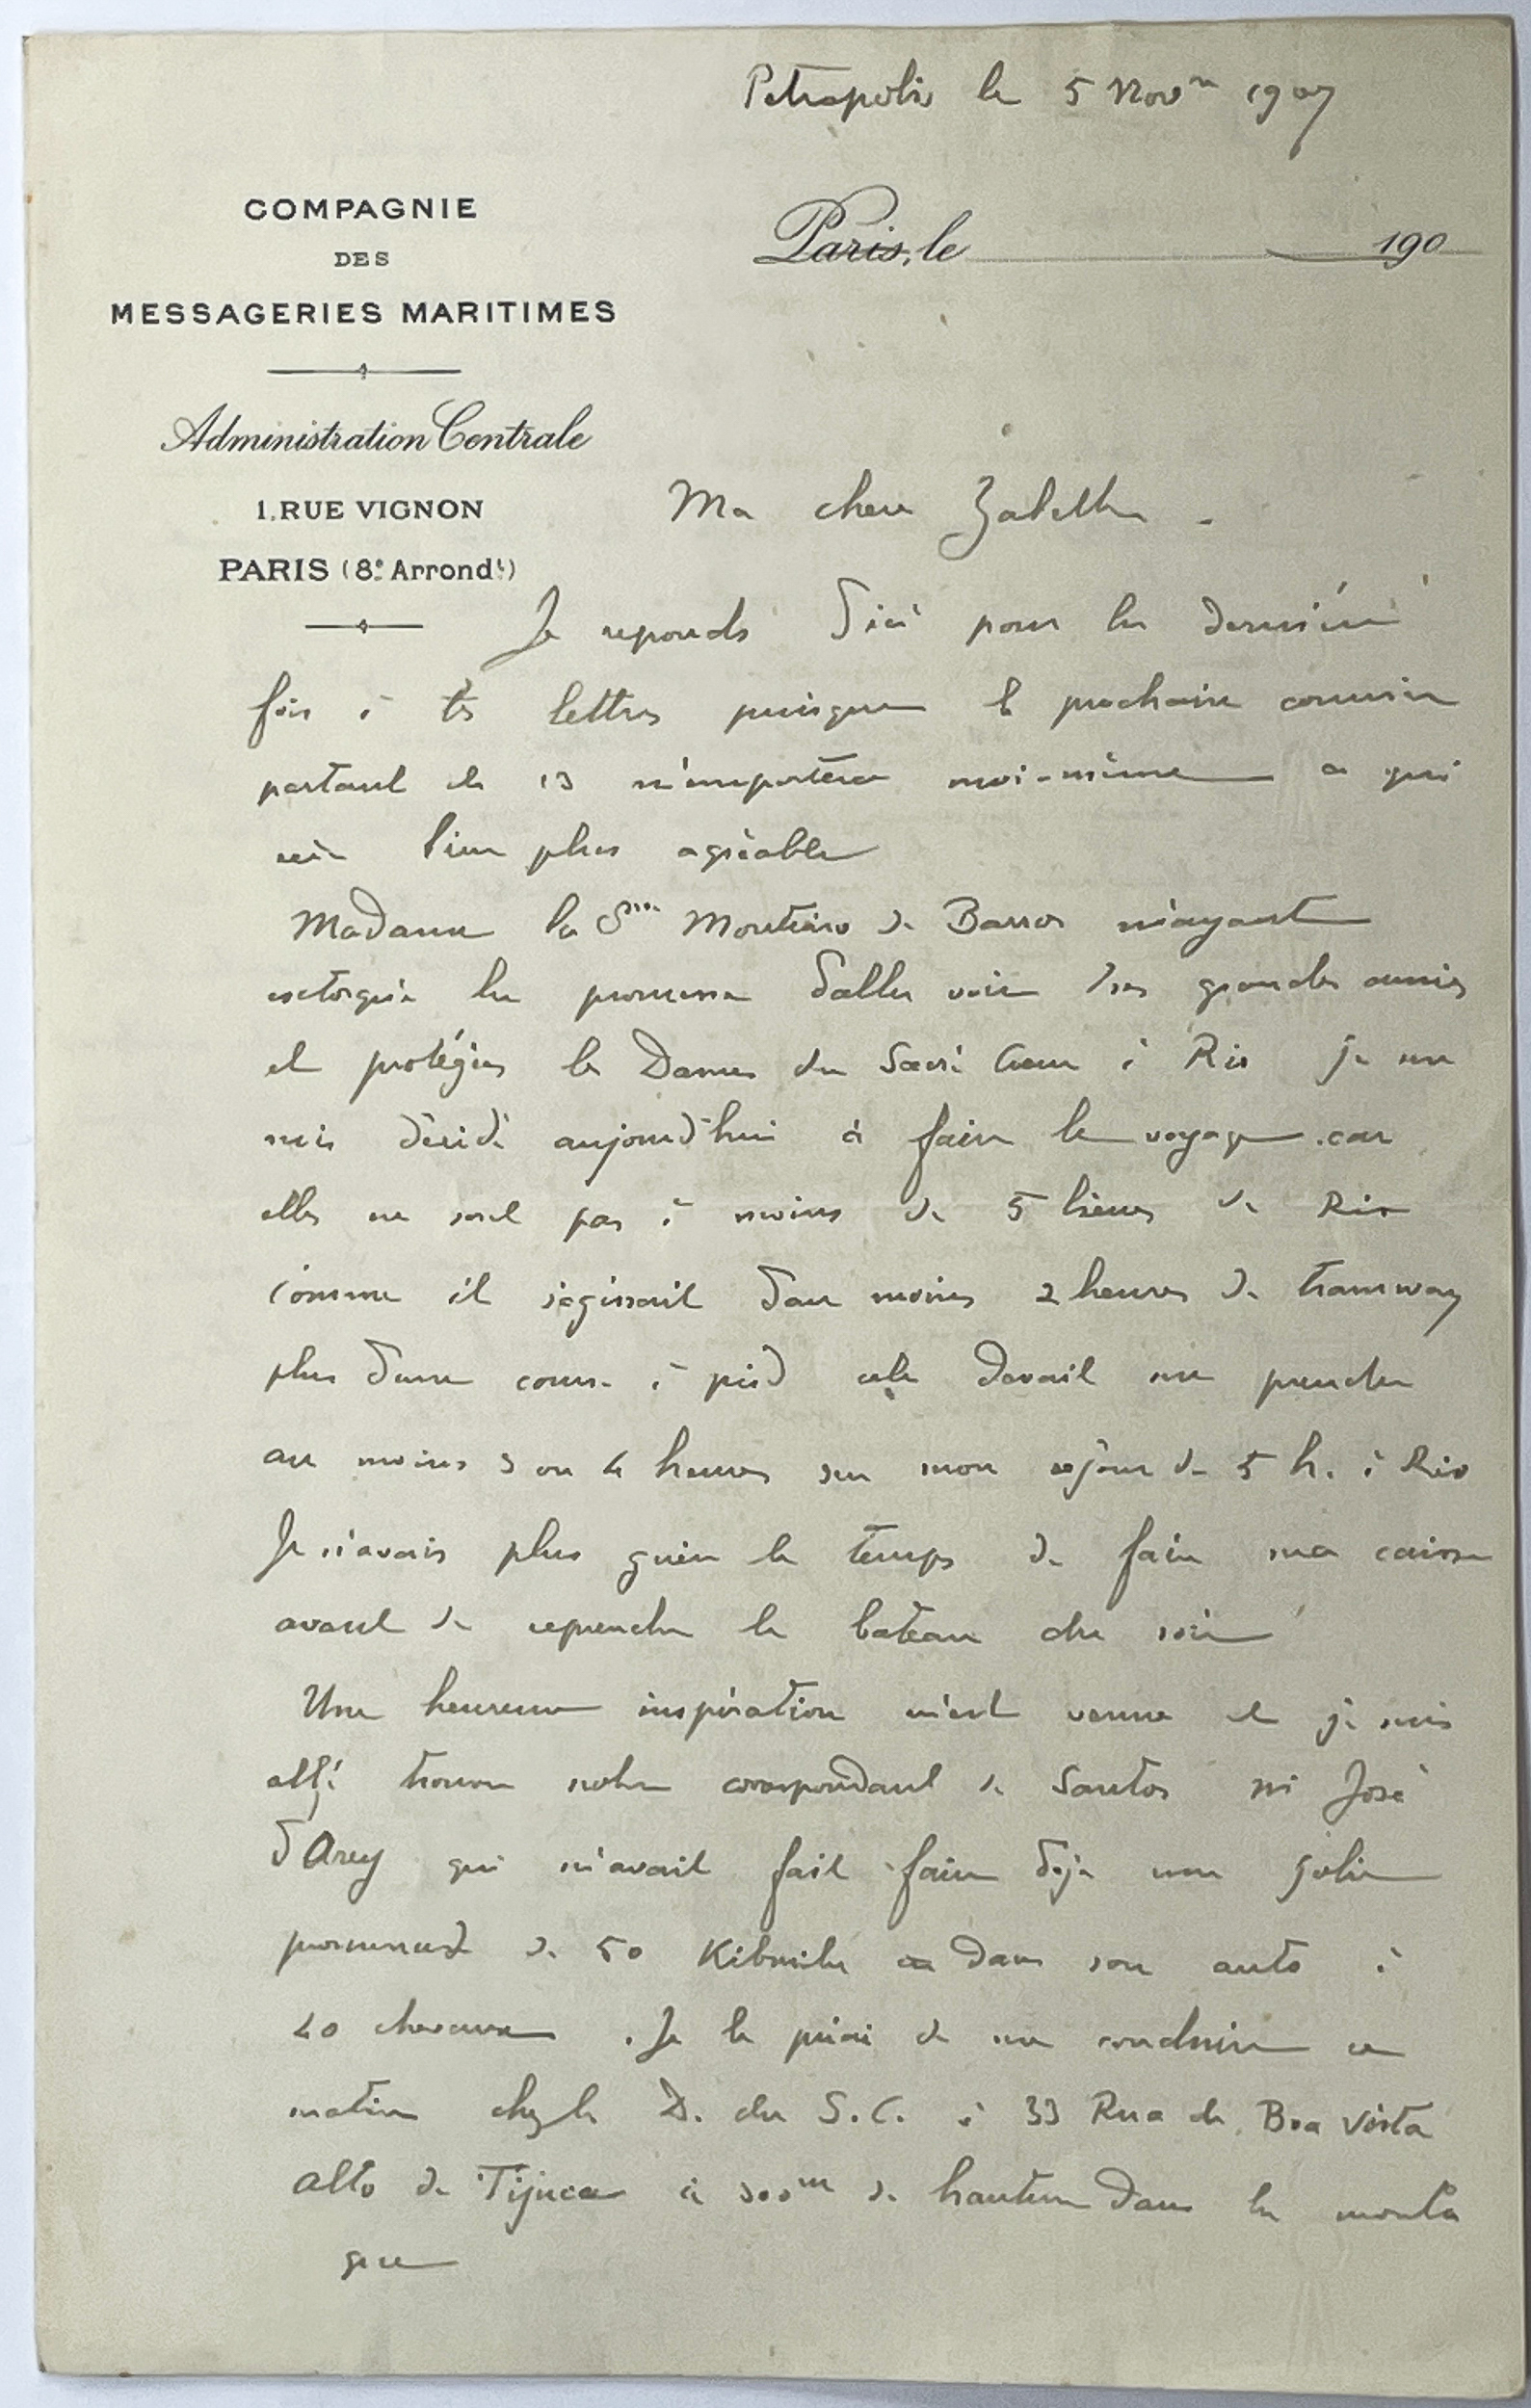 Petropolis le 5 Novre 1907
COMPAGNIE
DES
MESSAGERIES MARITIMES
Paris, le 190
Administration Centrale
1, RUE VIGNON
PARIS (8e Arrondt)
Ma chère Zabelle.
Je reponds d'ici pour la dernière
fois à tes lettres puisque le prochain courrier
partant le 13 m'emportera moi-même ce qui
sera bien plus agréable
Madame la Monteiro de Barros m'ayant
extorqué la promesse d'aller voir ses grandes amies
et protégées les Dames du Sacré Coeur à Rio je me
suis décidé aujourd'hui à faire le voyage. car
elles ne sont pas à moins de 5 lieues de Rio
Comme il s'agissait d'au moins 2 heures de tramway
plus d'une course à pied cela devait me prendre
au moins 3 ou 4 heures sur mon séjour de 5 h. à Rio
Je n'avais plus guère le temps de faire ma caisse
avant de reprendre le bateau du soir
Une heureuse inspiration m'est venue et je suis
allé trouver notre correspondant de Santos mr José
d'Orey qui m'avait fait faire deja une jolie
promenade de 50 Kilomtres dans son auto à
40 chevaux. Je le priai de me conduire ce
matin chez les D. du S.C. à 33 Rua da Boa Vista
Alto de Tijuca à 300m de hauteur dans la monta
gne